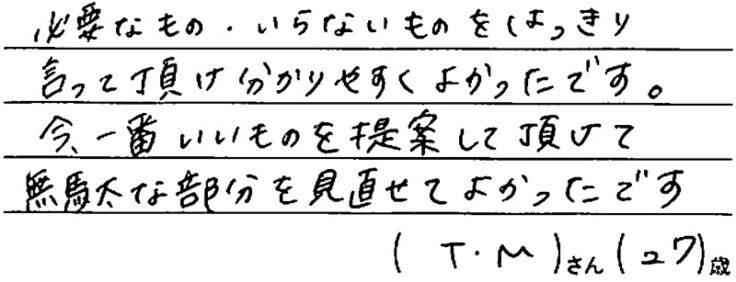 必要なもの・いらないものをはっきり
言って頂け分かりやすくよかったです。
今、一番いいものを提案して頂けて
無駄太な部分を見直せてよかったです
( T・M )さん ( 27 )歳